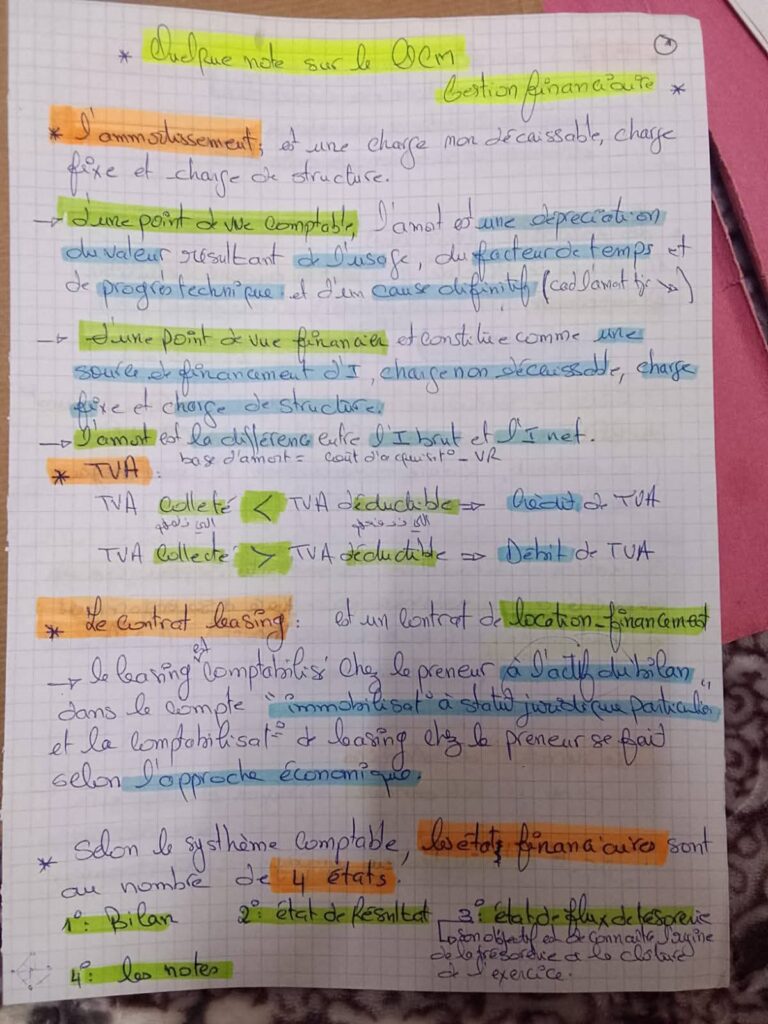 * Quelque note sur le QCM
Gestion financiaire *
* l'ammortissement; et une charge non décaissable, charge
fixe et charge de structure.
→ d'une point de vue comptable, l'amort est une depreciation
du valeur résultant de l'usage, du facteur de temps et
de progrès technique et d'un cause difinitif (cad l'amort tjr ↘)
→ d'une point de vue financier et constitue comme une
source de financement d'I, charge non décaissable, charge
fixe et charge de structure.
→ l'amort est la différence entre l'I brut et l'I net.
base d'amort = coût d'acquisit° - VR
* TVA :
TVA Colleté < TVA déductible ⇒ Crédit de TVA
TVA Collecté > TVA déductible ⇒ Débit de TVA
* Le contrat leasing : et un contrat de location-financement
→ le leasing est comptabilisé chez le preneur à l'actif du bilan
dans le compte "immobilisat° à statut juridique particulier"
et la comptabilisat° de leasing chez le preneur se fait
selon l'approche économique.
* Selon le systhème comptable, les états financiaires sont
au nombre de 4 états.
1°: Bilan 2°: état de Résultat 3°: état de flux de tésorerie
↳ son objectif est de connaitre l'origine
de la trésorerie a la cloture
de l'exercice.
4°: les notes